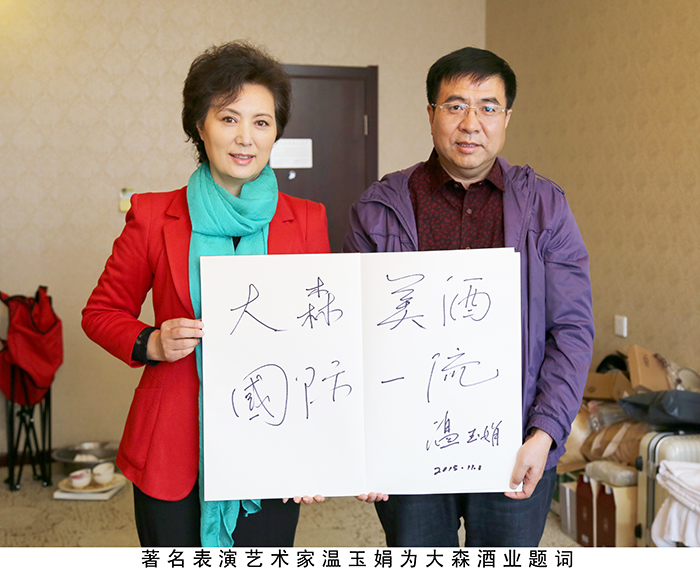 大森美酒
國际一流
温玉娟
2015.11.2
著名表演艺术家温玉娟为大森酒业题词